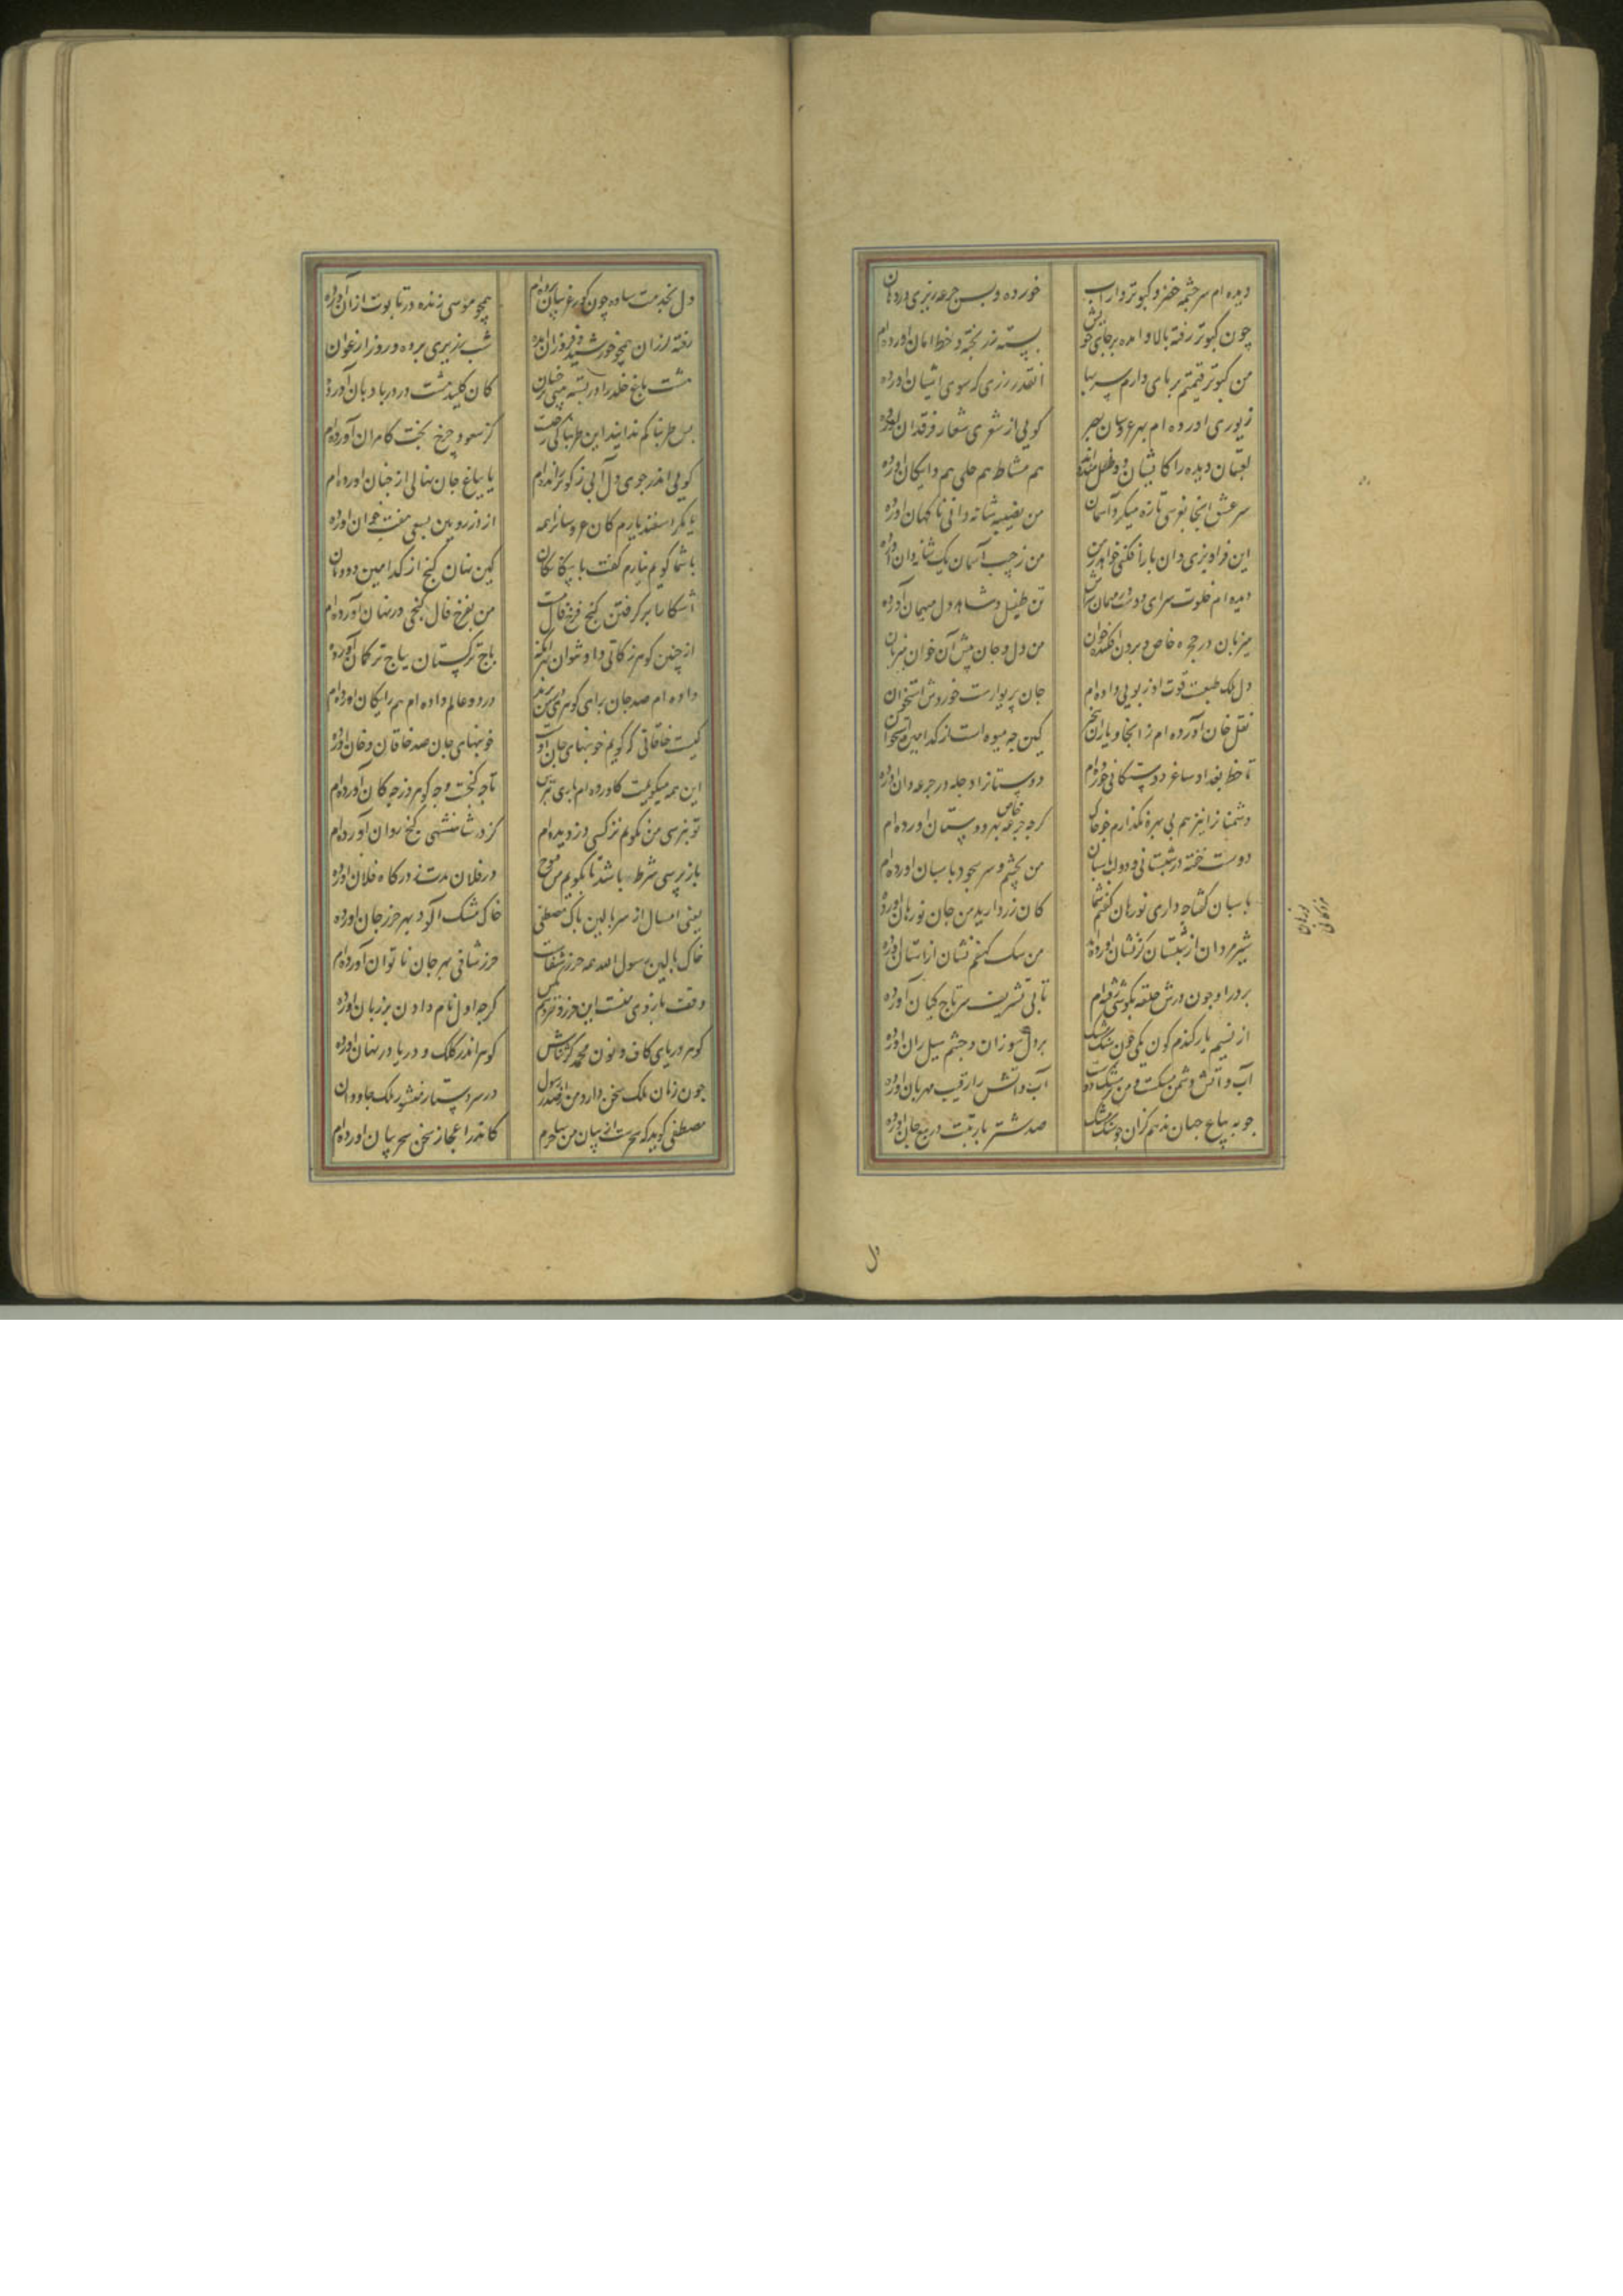 دیده ام سرچشمه خضر و کبوتروار آب خورده و بس جرعه ریزی در دهان
چون کبوتر رفته بالا و امده بر جای خویش بسته زر تحفه و خط امان اورده ام
من کبوتر قیمتم بر پای دارم سر بها انقدر زری که سوی اشیان اورده ام
زیوری اورده ام بهر عروسان بصر کویی از شعری شعار فرقدان اورده ام
لعبتان دیده را کایشان دو طفل هم مشاطه هم حلی هم دایکان اورده ام
سر عشق اینجا بغرسی تازه میکرد آسمان من نصیبه شانه دانی ناکهان اورده ام
این فراویزی و آن بازافکنی خواهد ز من من ز جیب آسمان یک شانه دان اورده ام
دیده ام خلوت سرای دوست در مهمان سراش تن طفیل و شاهد دل میهمان آورده ام
میزبان در حجره خاص و برون افکنده خوان من دل و جان پیش آن خوان میزبان
دل ملک طبعست قوت او ز بویی داده ام جان پریوارست خوردش استخوان
نقل خاص آورده ام ز انجا و یاران کین چه میوه است از کدامین بوستان
تا خط بغداد ساغر دوستکانی خورده ام دوستانرا دجله در جرعه دان اورده ام
دشمنانرا نیز هم بی بهره نکذارم چو خاک کرچه جرعه خاص بهر دوستان اورده ام
دوست خفته در شبستانی و دولت پاسبان من بچشم و سر سجود پاسبان اورده ام
پاسبان کفتا چه داری نورهان کفتم شما کان زر دارید من جان نورهان اورده ام
شیر مردان از شبستان کر نشان اورده اند من سک کهفم نشان از استان اورده ام
بر در او چون درش حلقه بکوشی رفته ام تا پی تشریف سر تاج کیان آورده ام
از نسیم یار کندم کون یکی جو سنک مشک بر دل سوزان و چشم سیل ران اورده ام
آب و آتش دشمن مشکست و من بر مشک دوست آب و آتش را رقیب مهربان اورده ام
جو به بیاع جهان ندهم کزان جو سنک مشک صد شتر بار تبت در بیع جان اورده ام
دل
دل بخدمت ساده چون کور غریبان برده ام همچو موسی زنده در تابوت از ان اورده ام
رفته لرزان همچو خورشید و فروزان امده شب زریری برده و روز ارغوان
هشت باغ خلد را در بسته بینی بر خسان کان کلید هشت در در بادبان آورده ام
بس طربناکم ندانید این طربناکی ز چیست کز سعود چرخ بخت کامران آورده ام
کویی اندر جوی دل آبی ز کوثر رانده ام یا بباغ جان نهالی از جنان اورده ام
یکرد اسفندیارم کان عروسان را همه از در رویین بسعی هفت خوان اورده ام
با شما کویم نیارم کفت با بیکانکان کین نهان کنج از کدامین دودمان
آشکارا بر کرفتن کنج فرخ فال نیست من بفرخ فال کنجی در نهان آورده ام
از چنین کوهر زکاتی داد نتوان بهر آنک باج ترکستان بباج ترکمان آورده ام
داده ام صد جان برای کوهری در من یزید ور دو عالم داده ام هم رایکان اورده ام
کیست خاقانی که کویم خونبهای جان اوست خونبهای جان صد خاقان و خان اورده ام
این همه میکویمت کاورده ام باری بپرس تا چه کنجست و چه کوهر وز چه کان آورده ام
تو نپرسی من نکویم نز کسی دزدیده ام کز در شاهنشهی کنج روان آورده ام
باز پرسی شرط باشد تا بکویم من موح در فلان مدت ز درکاه فلان اورده ام
یعنی امسال از سر بالین پاک مصطفی خاک مشک آلود بهر حرز جان اورده ام
خاک بالین رسول الله همه حرز شفاست حرز شافی بهر جان ناتوان آورده ام
وقف بازوی منست این حرز و نفروشم بکس کرچه اول نام دادن بر زبان اورده ام
کوهر دریای کاف و نون محمد کز ثناش کوهر اندر کلک و دریا در بنان اورده ام
چون زبان ملک سخن دارد من از صدر رسول در سر دستار منشور ملک جاودان
مصطفی کوید که سحرست از بیان من ساحرم کاندر اعجاز سخن سحر بیان اورده ام